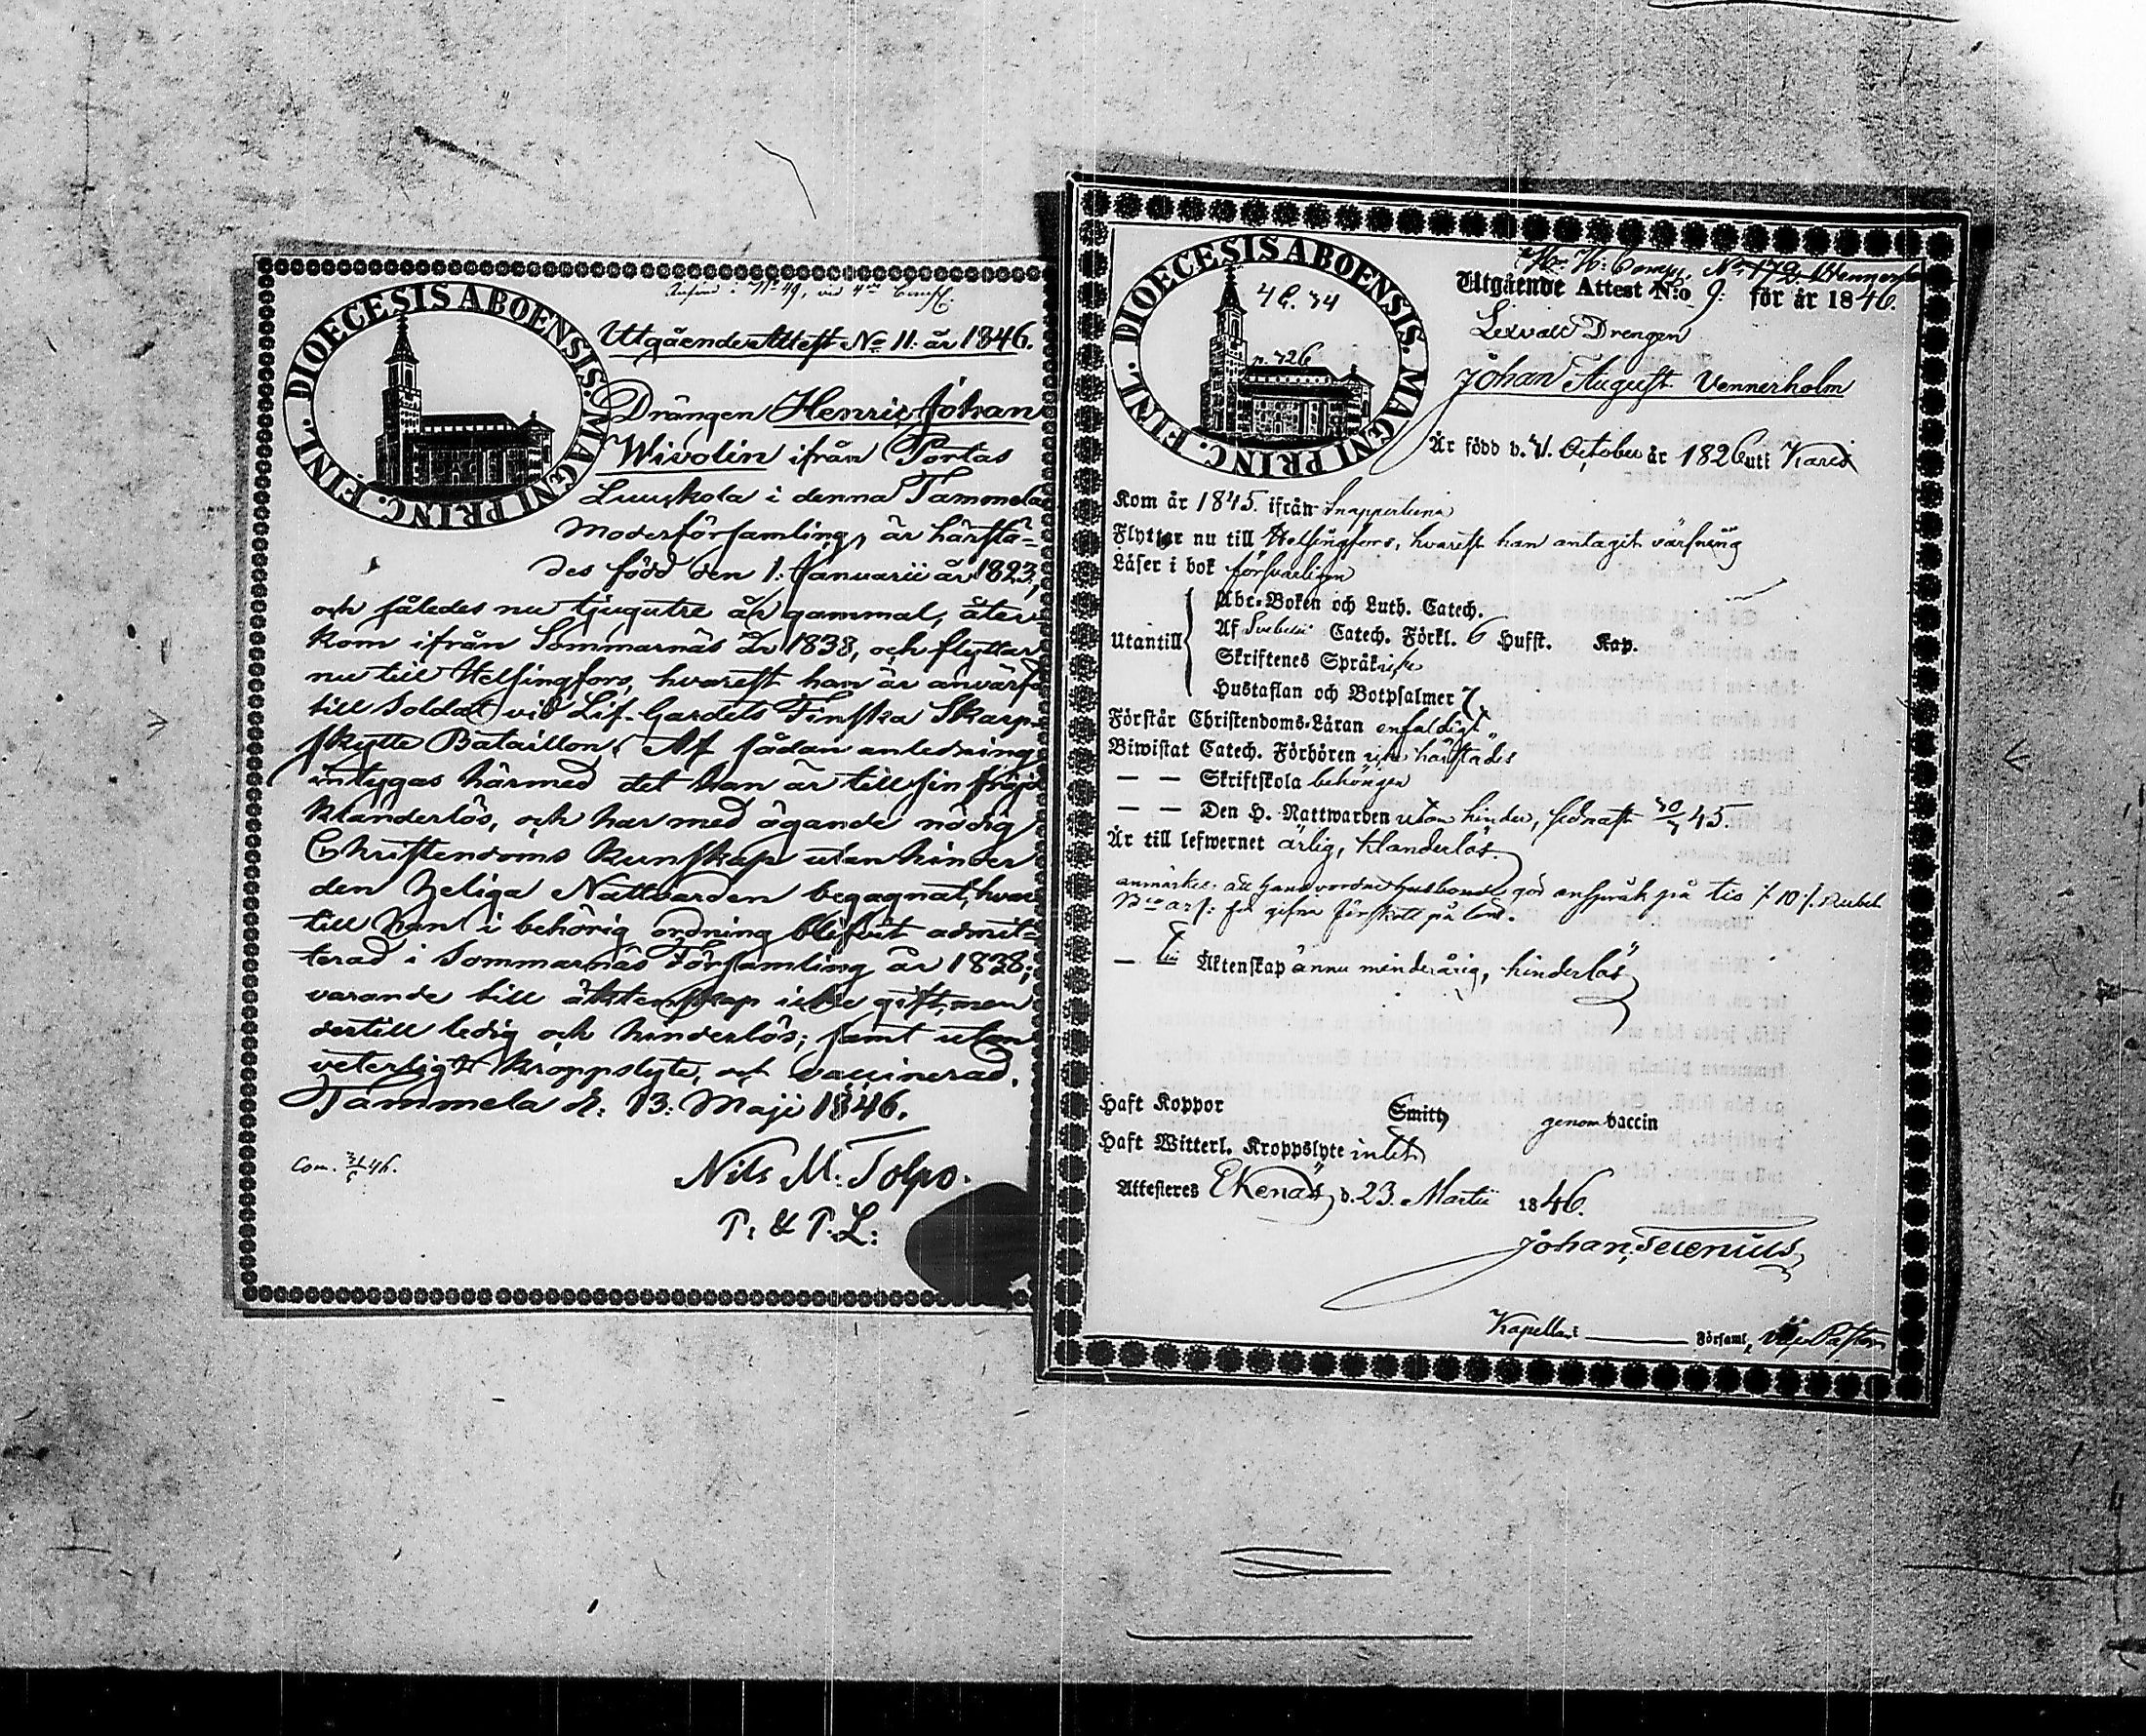 DIOECESIS ABOENSIS. MAGNI PRINC. FINL.
Utgående Attest No 11. år 1846.
Drängen Henric Johan
Wivolin ifrån Portas
Luuskola i denna Tammela
Moderförsamling, är härstä-
des född den 1. Januarii år 1823,
och således nu tjugutre år gammal, åter
kom ifrån Sommarnäs år 1838, och flyttar
nu till Helsingfors, hvarest han är anvärfd
till Soldat vid Lif-Gardets Finska Skarp-
skytte Bataillon. Af sådan anledning
intygas härmed det han är till sin fräjd
klanderlös, och har med ägande nödig
Christendoms kunskap utan hinder
den heliga Nattvarden begagnat, hvar
till han i behörig ordning blifvit admit-
terad i Sommarnäs Församling år 1838;
varande till äktenskap icke gift, men
dertill ledig och hinderlös; samt utan
veterligt kroppslyte, och vaccinerad.
Tammela d. 13. Maji 1846.
Nils M. Tolpo.
P. & P. L:
Com. 46.
DIOECESIS ABOENSIS. MAGNI PRINC. FINL.
46. 34
p. 326
Comp. No 172
Utgående Attest N:o 9. för år 1846.
Drengen
Johan August Vennerholm
Är född d. October år 1826 uti Karis
Kom år 1845. ifrån Snappertuna
Flyttar nu till Helsingfors, hvarest han antagit värfning
Läser i bok försvarligen
Utantill
Abc-Boken och Luth. Catech.
Af Svebelii Catech. Förkl. 6 Hufst. Kap.
Skriftenes Språk icke
Hustaflan och Botpsalmer 7
Förstår Christendoms-Läran enfaldigt
Biwistat Catech. Förhören icke härstädes
— — Skriftskola behörigen
— — Den H. Nattwarden utan hinder, sednast 45.
Är till lefwernet ärlig, klanderlös.
anmärkes att husbonde gör anspråk på tio /10/ Rubel
för gifna förskott på lön.
— till Äktenskap ännu minderårig, hinderlös
Haft Koppor Smitt genom vaccin
Haft Witterl. Kroppslyte intet
Attesteres Ekenäs d. 23. Martii 1846.
Johan
Kapellani Församl, Vice Pastor